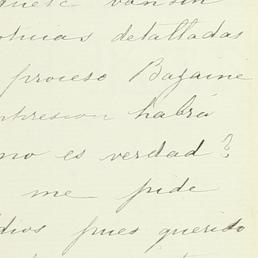 noticias detalladas
proceso Bazaine
impresion habrá
no es verdad?
me pide
dios pues querido